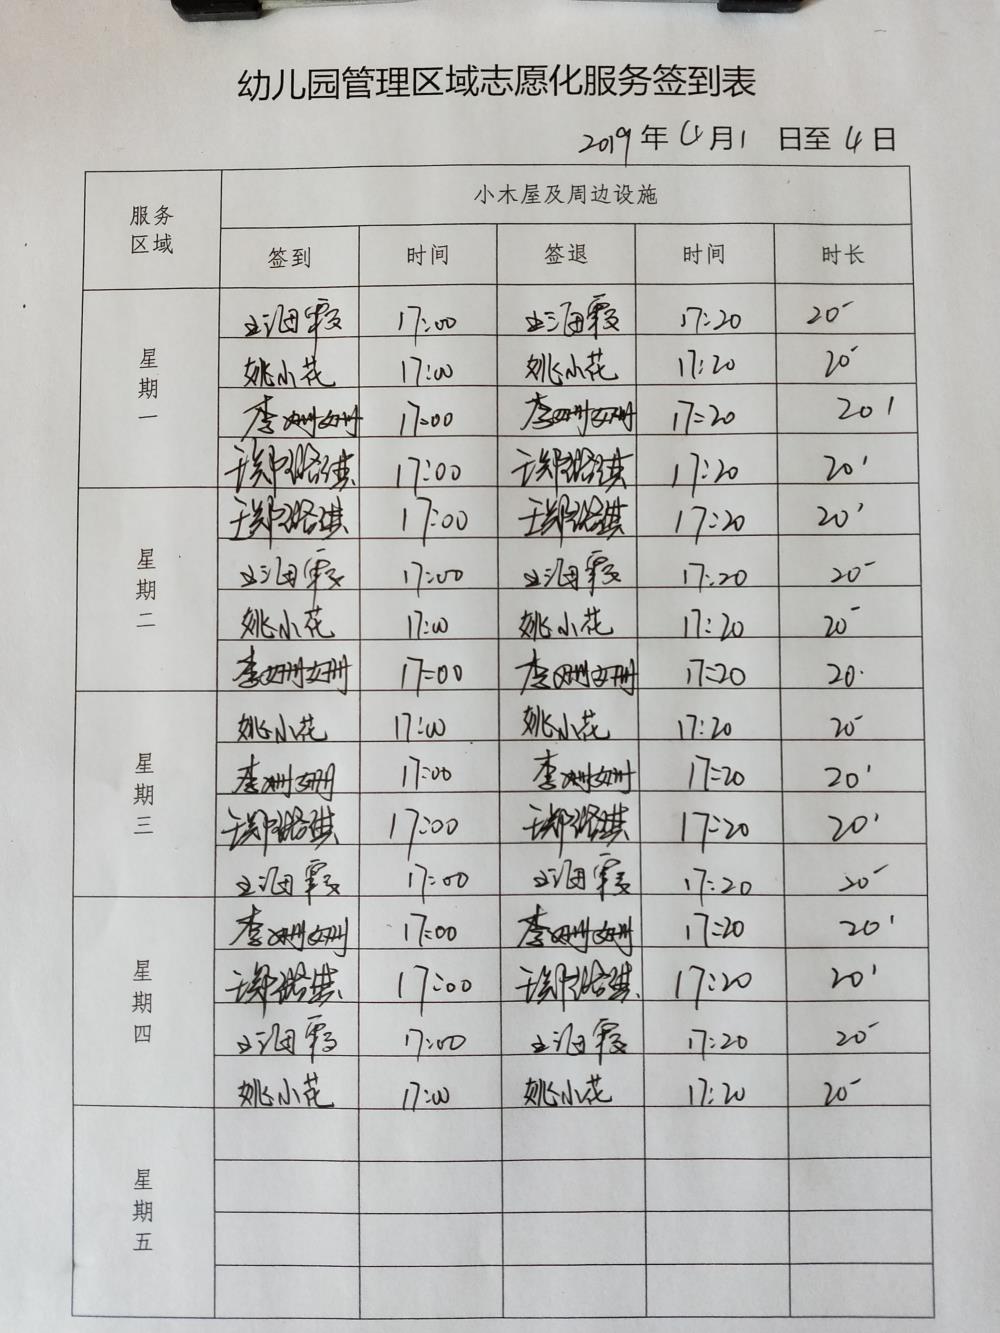 幼儿园管理区域志愿化服务签到表
2019年4月1 日至4日
服务区域 小木屋及周边设施
签到 时间 签退 时间 时长
星期一
17:00 17:20 20'
姚小花 17:00 姚小花 17:20 20'
李姗姗 17:00 李姗姗 17:20 20'
17:00 17:20 20'
星期二
17:00 17:20 20'
17:00 17:20 20'
姚小花 17:00 姚小花 17:20 20'
李姗姗 17:00 李姗姗 17:20 20'
星期三
姚小花 17:00 姚小花 17:20 20'
李姗姗 17:00 李姗姗 17:20 20'
17:00 17:20 20'
17:00 17:20 20'
星期四
李姗姗 17:00 李姗姗 17:20 20'
17:00 17:20 20'
17:00 17:20 20'
姚小花 17:00 姚小花 17:20 20'
星期五